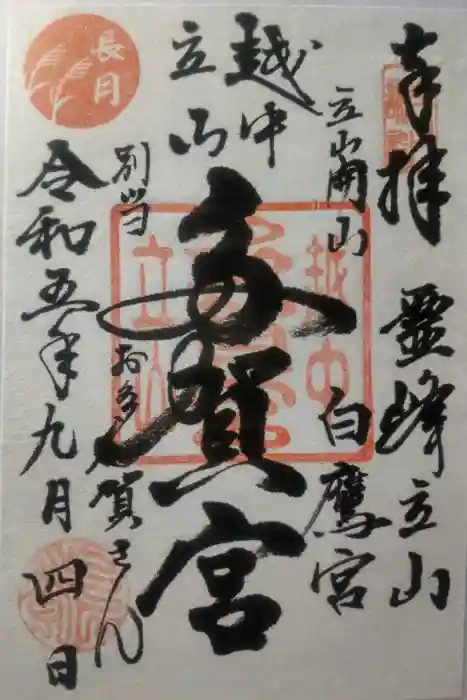 奉拝
靈峰立山
立山開山
白鷹宮
越中
立山
多賀宮
別当
お多賀さん
令和五年九月四日
長月
越中
立山